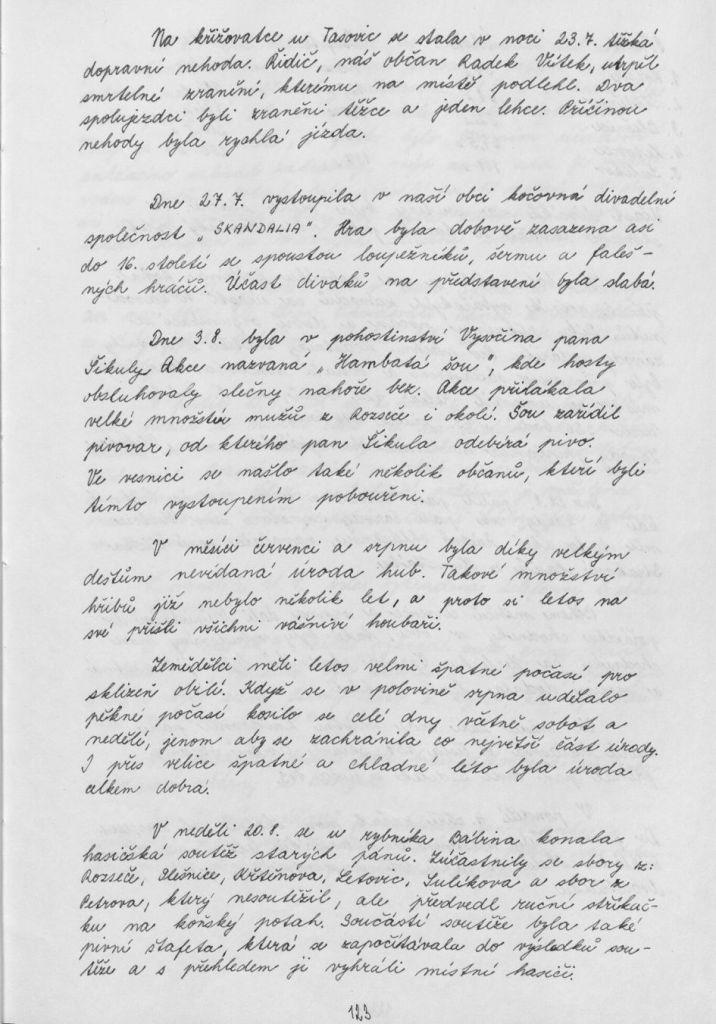 Na křižovatce u Tasovic se stala v noci 23.7. těžká
dopravní nehoda. Řidič, náš občan Radek Vítek, utrpěl
smrtelné zranění, kterému na místě podlehl. Dva
spolujezdci byli zraněni těžce a jeden lehce. Příčinou
nehody byla rychlá jízda.
Dne 27.7. vystoupila v naší obci kočovná divadelní
společnost „SKANDALIA". Hra byla dobově zasazena asi
do 16. století se spoustou loupežníků, šermu a faleš-
ných hráčů. Účast diváků na představení byla slabá.
Dne 3.8. byla v pohostinství Vysočina pana
Šikuly Akce nazvaná „Hambatá šou", kde hosty
obsluhovaly slečny nahoře bez. Akce přilákala
velké množství mužů z Rozseče i okolí. Šou zařídil
pivovar, od kterého pan Šikula odebírá pivo.
Ve vesnici se našlo také několik občanů, kteří byli
tímto vystoupením pobouřeni.
V měsíci červenci a srpnu byla díky velkým
dešťům nevídaná úroda hub. Takové množství
hřibů již nebylo několik let, a proto si letos na
své přišli všichni vášniví houbaři.
Zemědělci měli letos velmi špatné počasí pro
sklizeň obilí. Když se v polovině srpna udělalo
pěkné počasí kosilo se celé dny vátně sobot a
nedělí, jenom aby se zachránila co největší část úrody.
I přes velice špatné a chladné léto byla úroda
celkem dobrá.
V neděli 20.8. se u rybníka Bábina konala
hasičská soutěž starých pánů. Zúčastnily se sbory z:
Rozseče, Olešnice, Křtěnova, Letovic, Sulíkova a sbor z
Petrova, který nesoutěžil, ale předvedl ruční stříkač-
ku na koňský potah. Součástí soutěže byla také
pivní štafeta, která se započítávala do výsledků sou-
těže a s přehledem ji vyhráli místní hasiči.
123